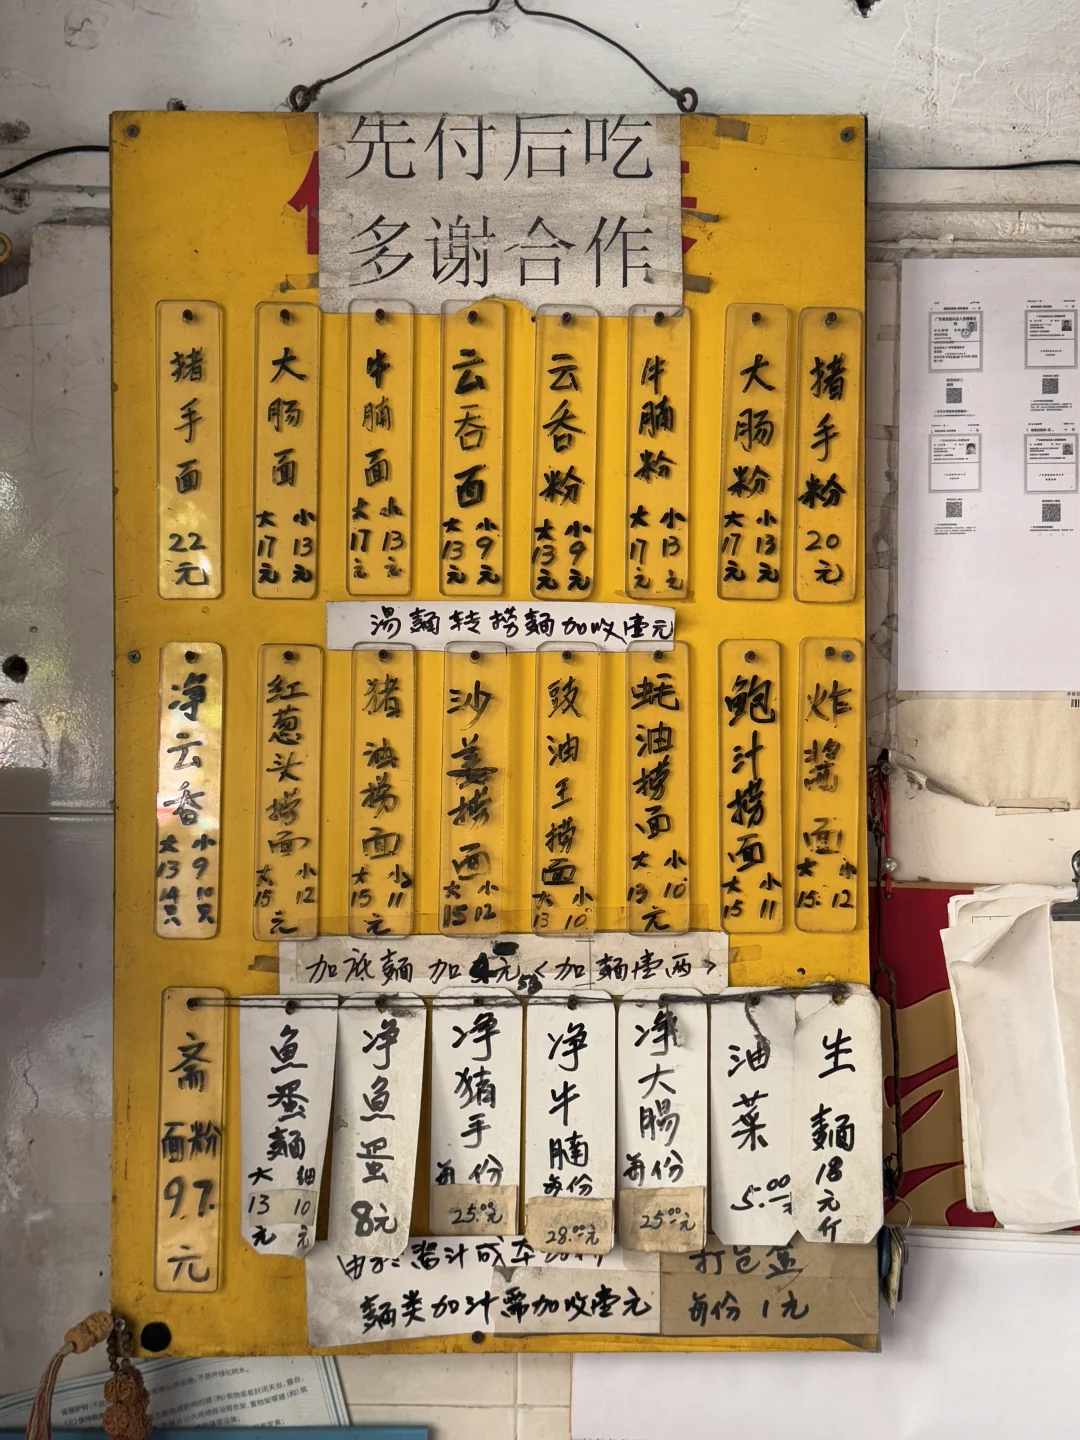 先付后吃
多谢合作
猪手面 22元
大肠面 大17元 小13元
牛腩面 大17元 小13元
云吞面 大13元 小9元
云吞粉 大13元 小9元
牛腩粉 大17元 小13元
大肠粉 大17元 小13元
猪手粉 20元
湯麵转捞麵加收壹元
净云吞 大13 14只 小9 10只
红葱头捞面 大15 小12 元
猪油捞面 大15 小11 元
沙姜捞面 大15 小12
豉油王捞面 大13 小10
蚝油捞面 大13 小10 元
鲍汁捞面 大15 小11
炸酱面 大15 小12
加底麵 加 元<加麵壹两>
斋面粉 9 元
魚蛋麵 大13元 细10元
净魚蛋 8元
净猪手 每份 25.00元
净牛腩 每份 28.00元
净大腸 每份 25.00元
油菜 5.00元
生麵 18元斤
由于酱汁成本
麵类加汁需加收壹元
打包盒
每份1元